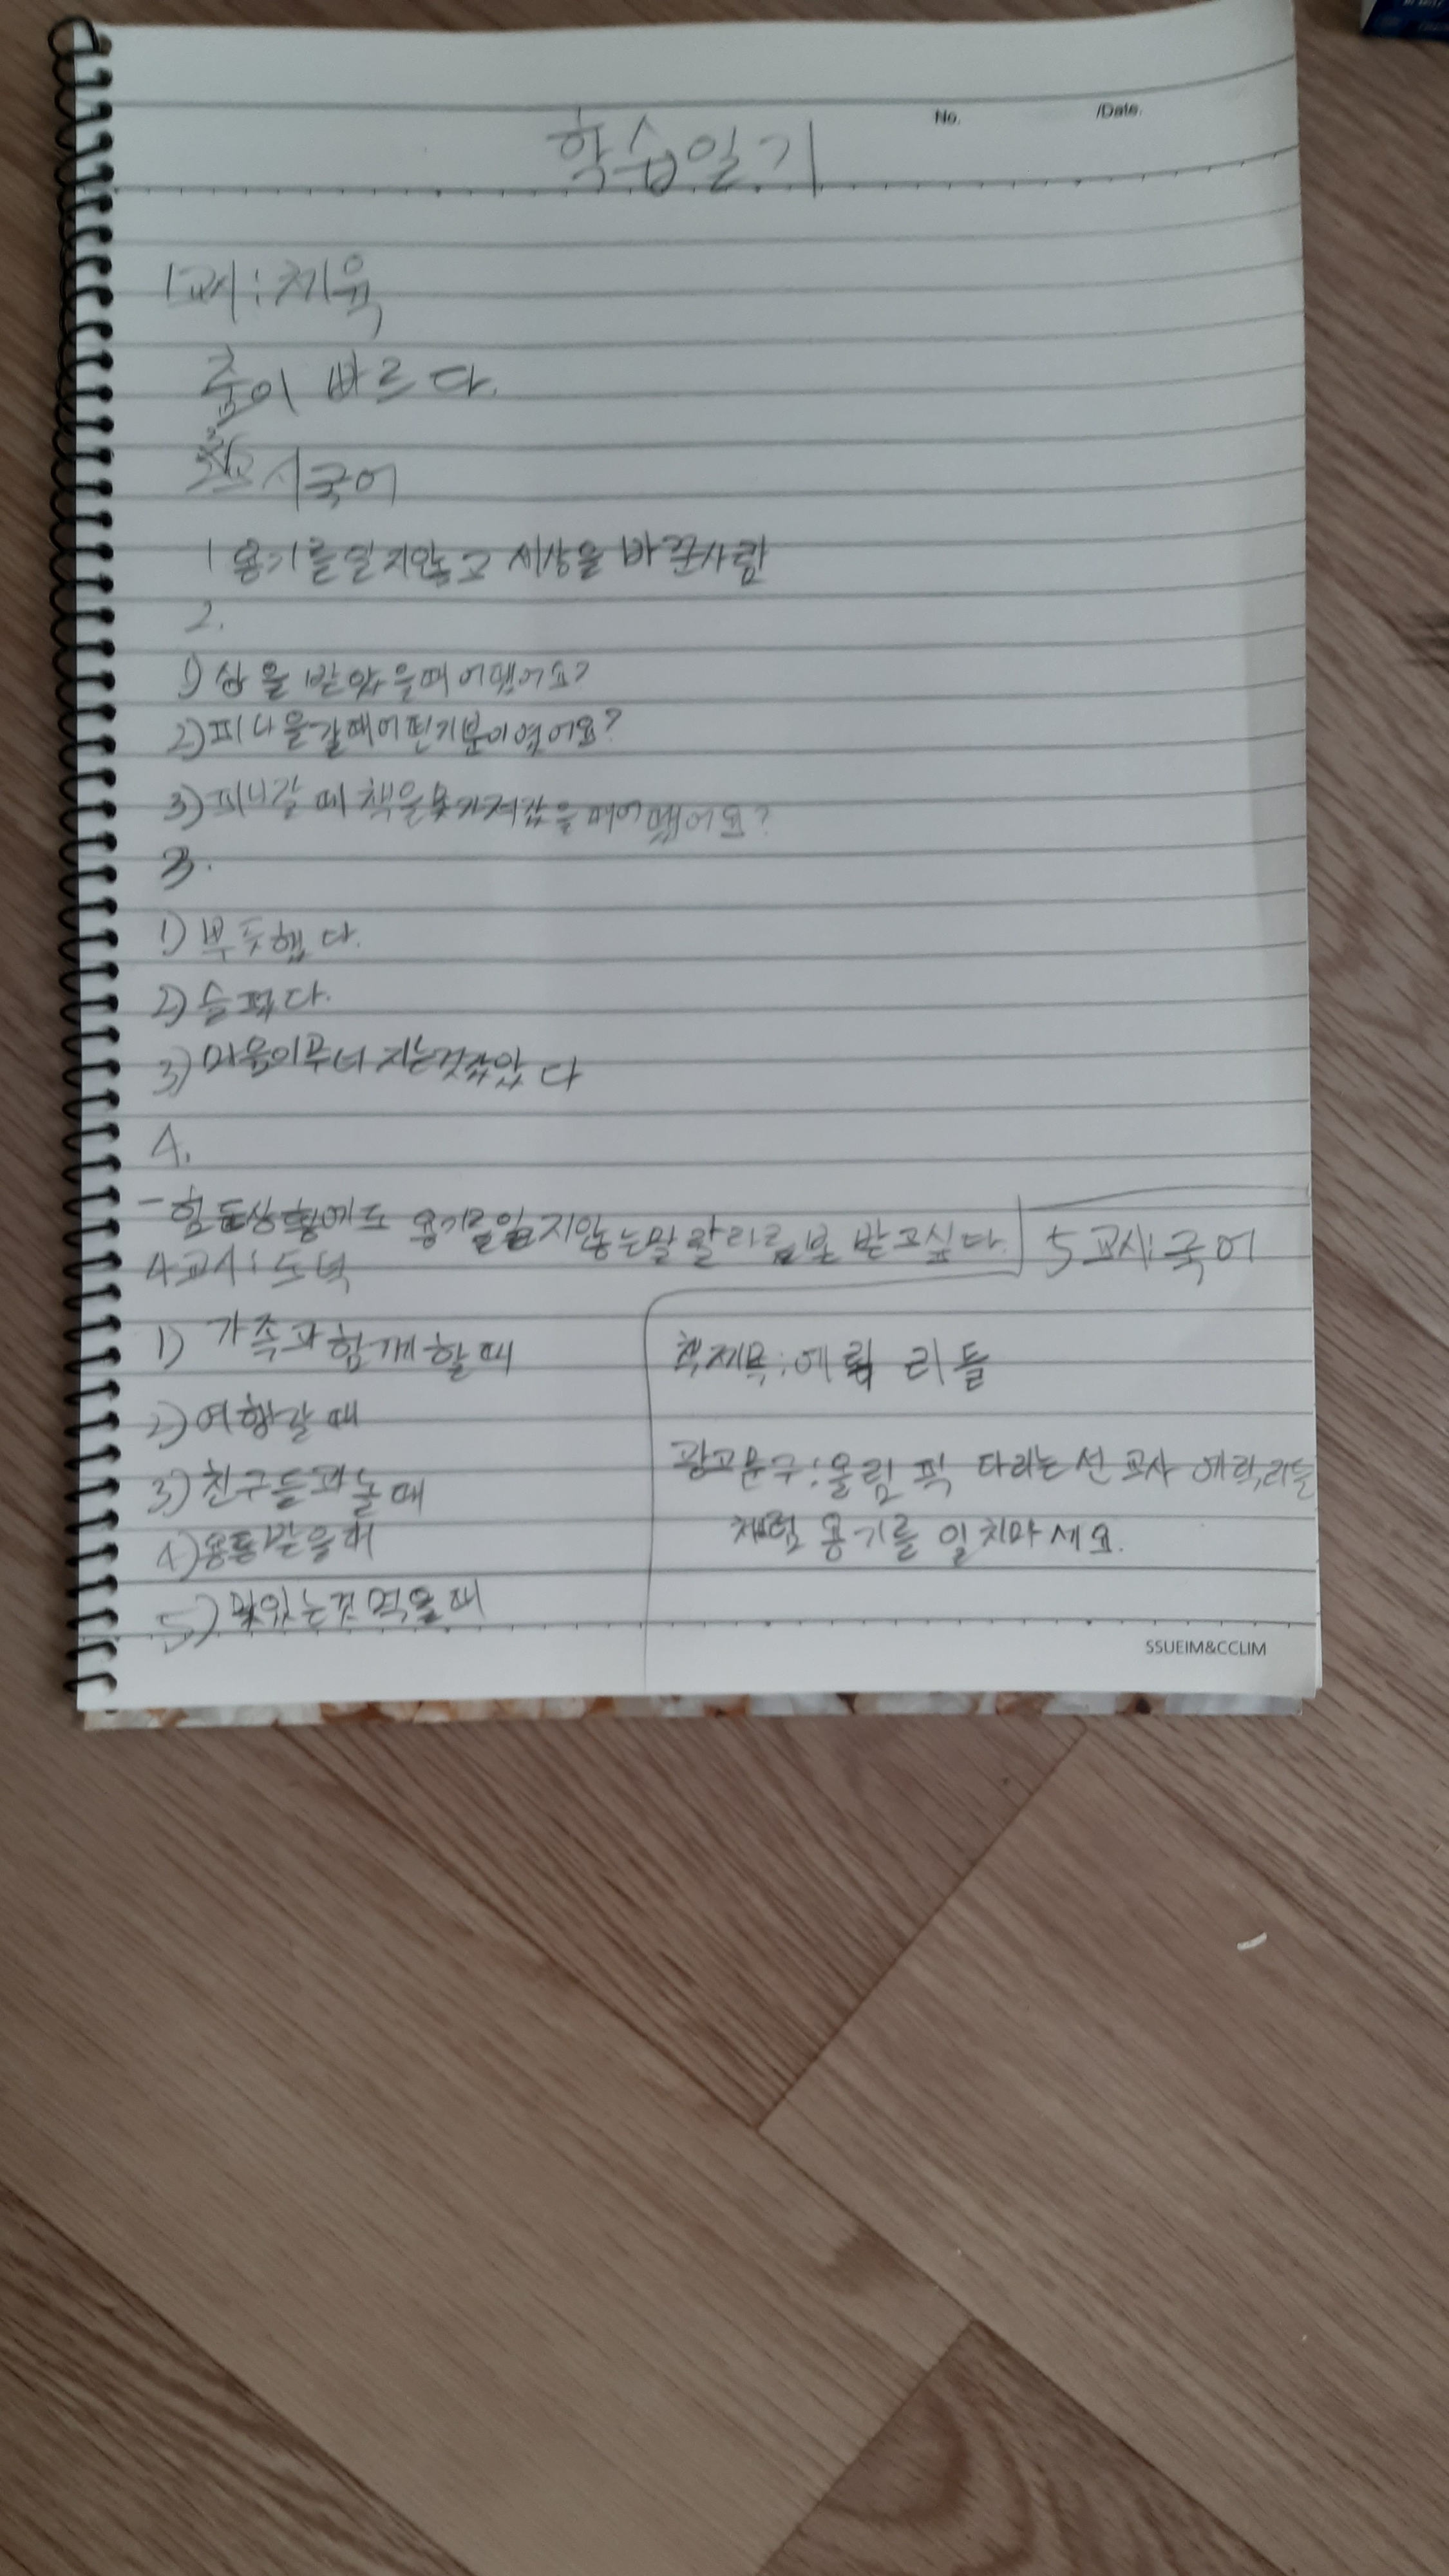 No. /Date.
학습일기
1교시:체육
춤이 빠르다.
교시국어
1 용기를잃지않고 세상을 바꾼사람
2.
1) 상을 받았을때 어땠어요?
2) 피난을갈때어떤기분이였어요?
3) 피난갈때 책을못가져갔을때어땠어요?
3.
1) 뿌듯했다.
2) 슬펐다.
3) 마음이무너지는것같았다
4.
-힘든상황에도 용기를잃지않는말랄라를 본받고싶다.
4교시:도덕
1) 가족과함께할때
2) 여행갈때
3) 친구들과놀때
4) 용돈받을때
5) 맛있는것먹을때
5교시:국어
책제목:에릭 리들
광고문구:올림픽 다리는 선교사 에릭리들
처럼 용기를 잃치마세요.
SSUEIM&CCLIM